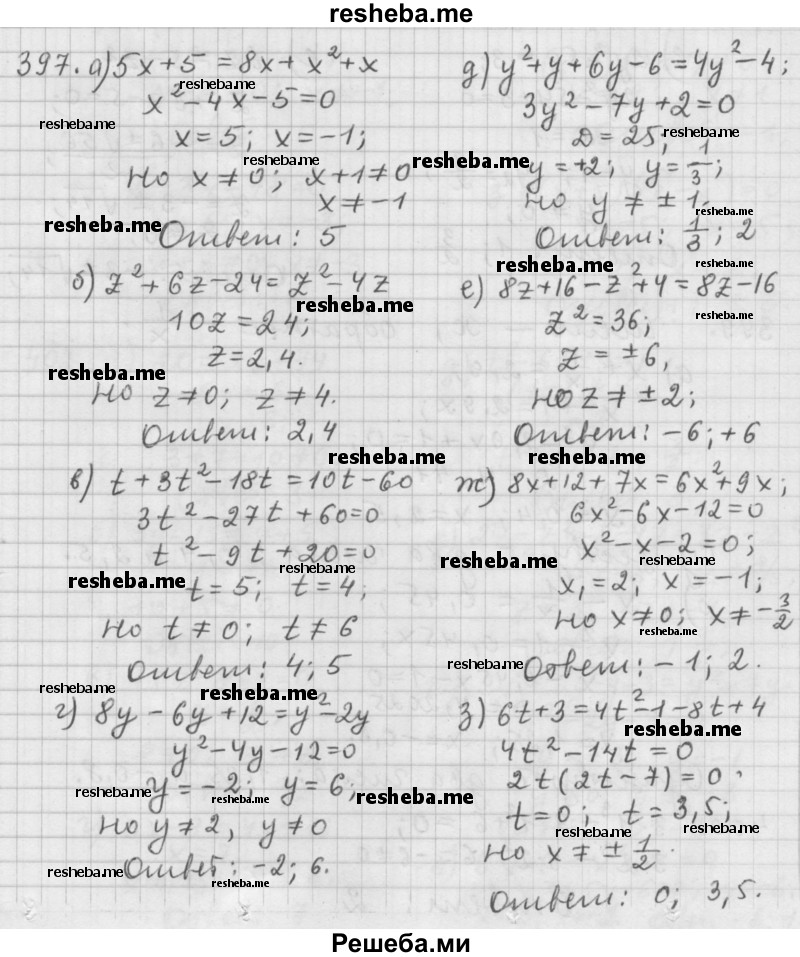 resheba.me
397. а) 5x+5 = 8x + x²+x
x²-4x-5=0
x=5; x=-1;
Но x≠0; x+1≠0
x≠-1
Ответ: 5
б) z²+6z-24= z²-4z
10z=24;
z=2,4.
Но z≠0; z≠4.
Ответ: 2,4
в) t+3t²-18t=10t-60
3t²-27t+60=0
t²-9t+20=0
t=5; t=4;
Но t≠0; t≠6
Ответ: 4; 5
г) 8y-6y+12=y²-2y
y²-4y-12=0
y=-2; y=6;
Но y≠2, y≠0
Ответ: -2; 6.
д) y²+y+6y-6=4y²-4;
3y²-7y+2=0
D=25;
y=+2; y=1/3;
Но y≠±1.
Ответ: 1/3; 2
е) 8z+16-z²+4=8z-16
z²=36;
z=±6,
но z≠±2;
Ответ: -6; +6
ж) 8x+12+7x=6x²+9x;
6x²-6x-12=0
x²-x-2=0;
x₁=2; x=-1;
Но x≠0; x≠-3/2
Ответ: -1; 2.
з) 6t+3=4t²-1-8t+4
4t²-14t=0
2t(2t-7)=0
t=0; t=3,5;
Но x≠±1/2.
Ответ: 0; 3,5.
Решеба.ми